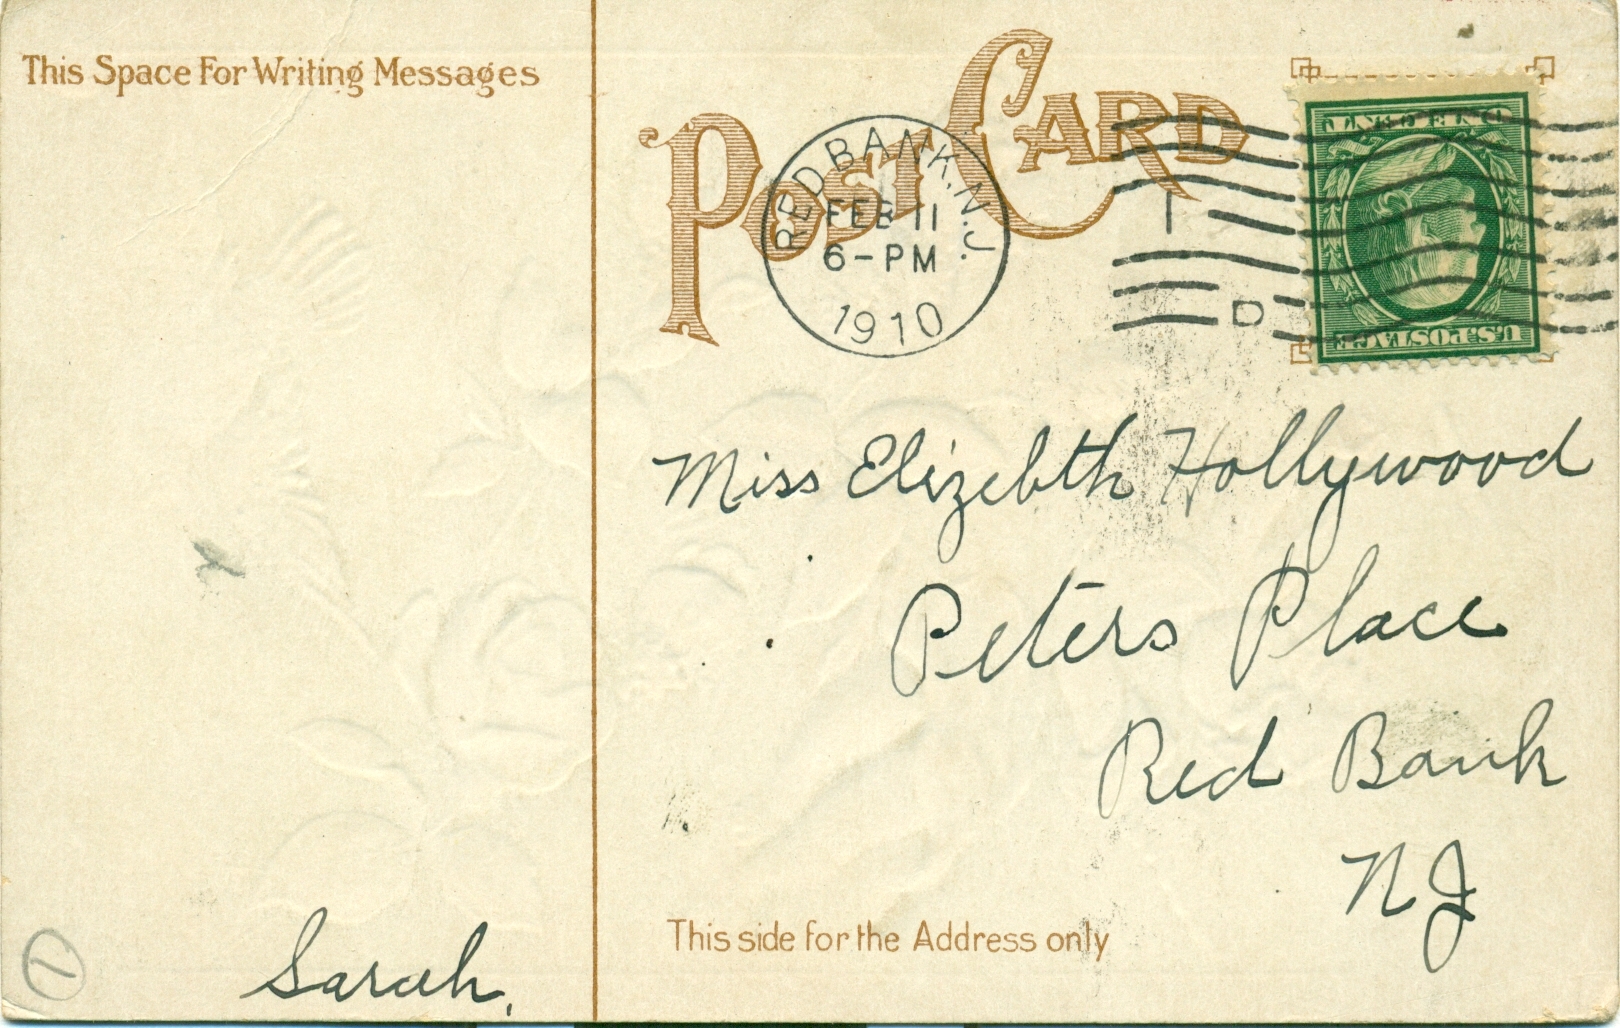 This Space For Writing Messages
POST CARD
RED BANK. N.J.
FEB 11
6-PM
1910
1
D
ONE CENT
U.S. POSTAGE
Miss Elizebth Hollywood
Peters Place
Red Bank
N J
This side for the Address only
Sarah.
1